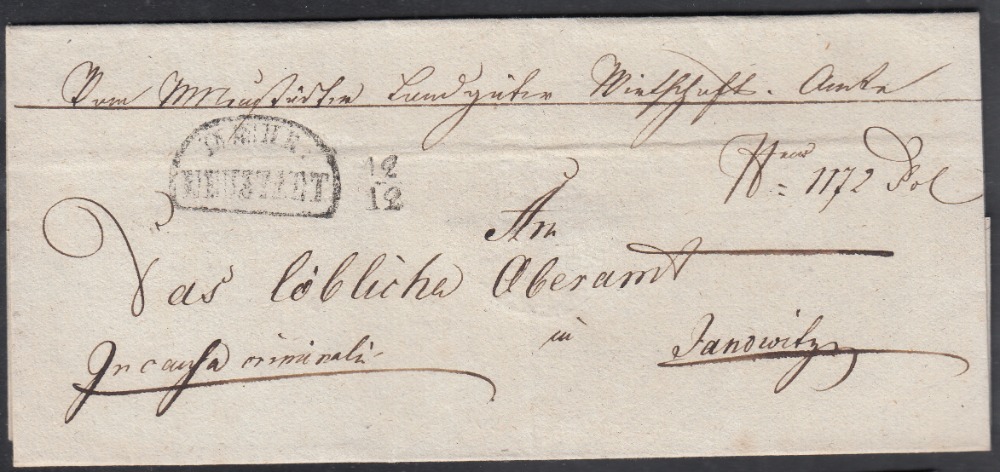 Vom MNeustädter Landgüter Wirtschaft. Amte
MÆHR.
NEUSTAET
12
12
Nro = 1172 Pol
An
Das löbliche Oberamt
in
Janowitz
In causa criminali